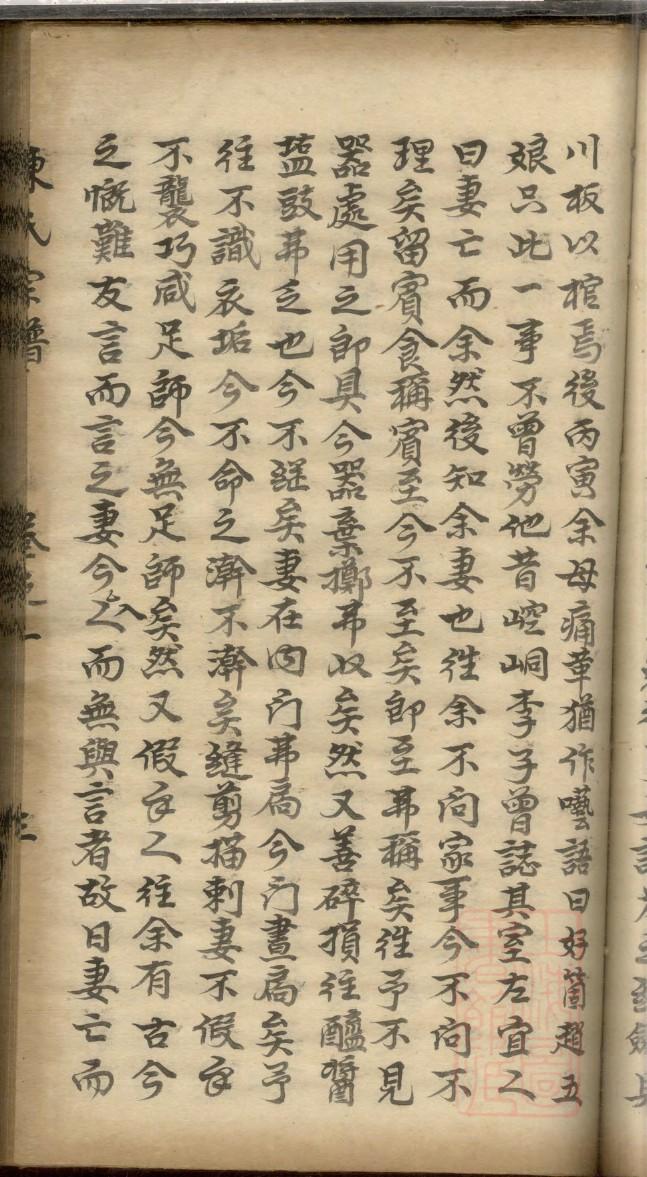 川板以棺焉後丙寅余母痛革猶作囈語曰好箇趙五
娘只此一事不曾勞他昔崆峒李子曾誌其室左宜人
曰妻亡而余然後知余妻也徃余不问家事今不问不
理矣留賓食稱賓至今不至矣即至弗稱矣徃予不見
器處用之即具今器棄擲弗收矣然又善碎損徃醯醬
塩豉弗乏也今不継矣妻在内门弗扃今门晝扃矣予
徃不識衣垢今不命之澣不澣矣縫剪描刺妻不假手
不襲巧咸足師今無足師矣然又假手人往余有古今
之慨難友言而言之妻今入而無與言者故曰妻亡而
陳氏宗譜